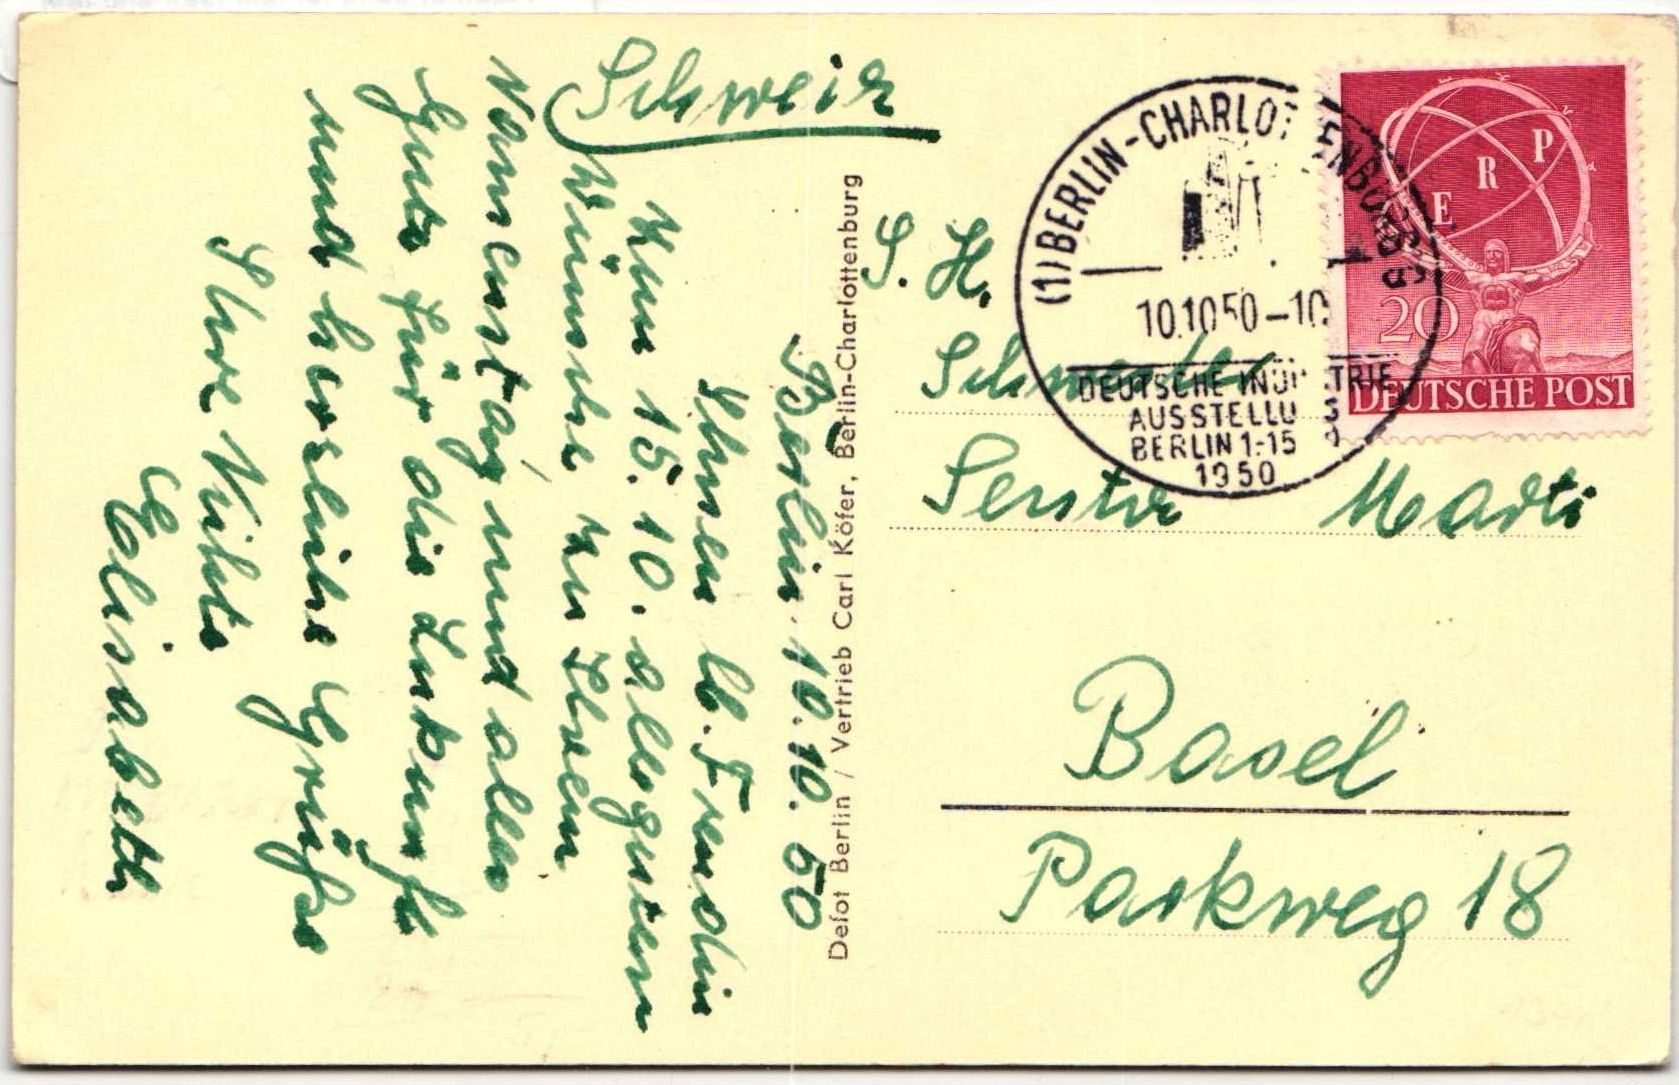 Schweiz
Berlin 10.10.50
Ihnen lb. Freundin
zum 15.10. alles guten
Wünsche zu Ihrem
Namenstag und alles
Gute für die Zukunft
und herzliche Grüße
Ihre Käthe
Elisabeth
Defot Berlin / Vertrieb Carl Köfer, Berlin-Charlottenburg
S. H.
Schwester
Senta Marti
Basel
Parkweg 18
(1) BERLIN-CHARLOTTENBURG
10.10.50-10
DEUTSCHE INDUSTRIE
AUSSTELLUNG
BERLIN 1.-15
1950
E R P
20
DEUTSCHE POST